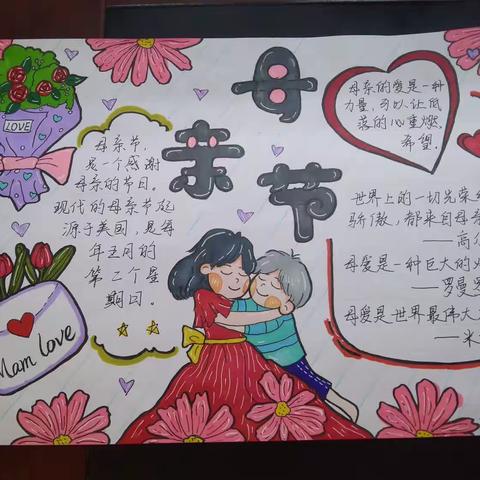 母亲节
LOVE
母亲节,
是一个感谢
母亲的节日。
现代的母亲节起
源于美国,是每
年五月的
第二个星
期日。
母亲的爱是一种
力量,可以让低
落的心重燃
希望。
世界上的一切光荣
骄傲,都来自母亲
——高
母爱是一种巨大的火
——罗曼
母爱是世界最伟大
——米
Mam love